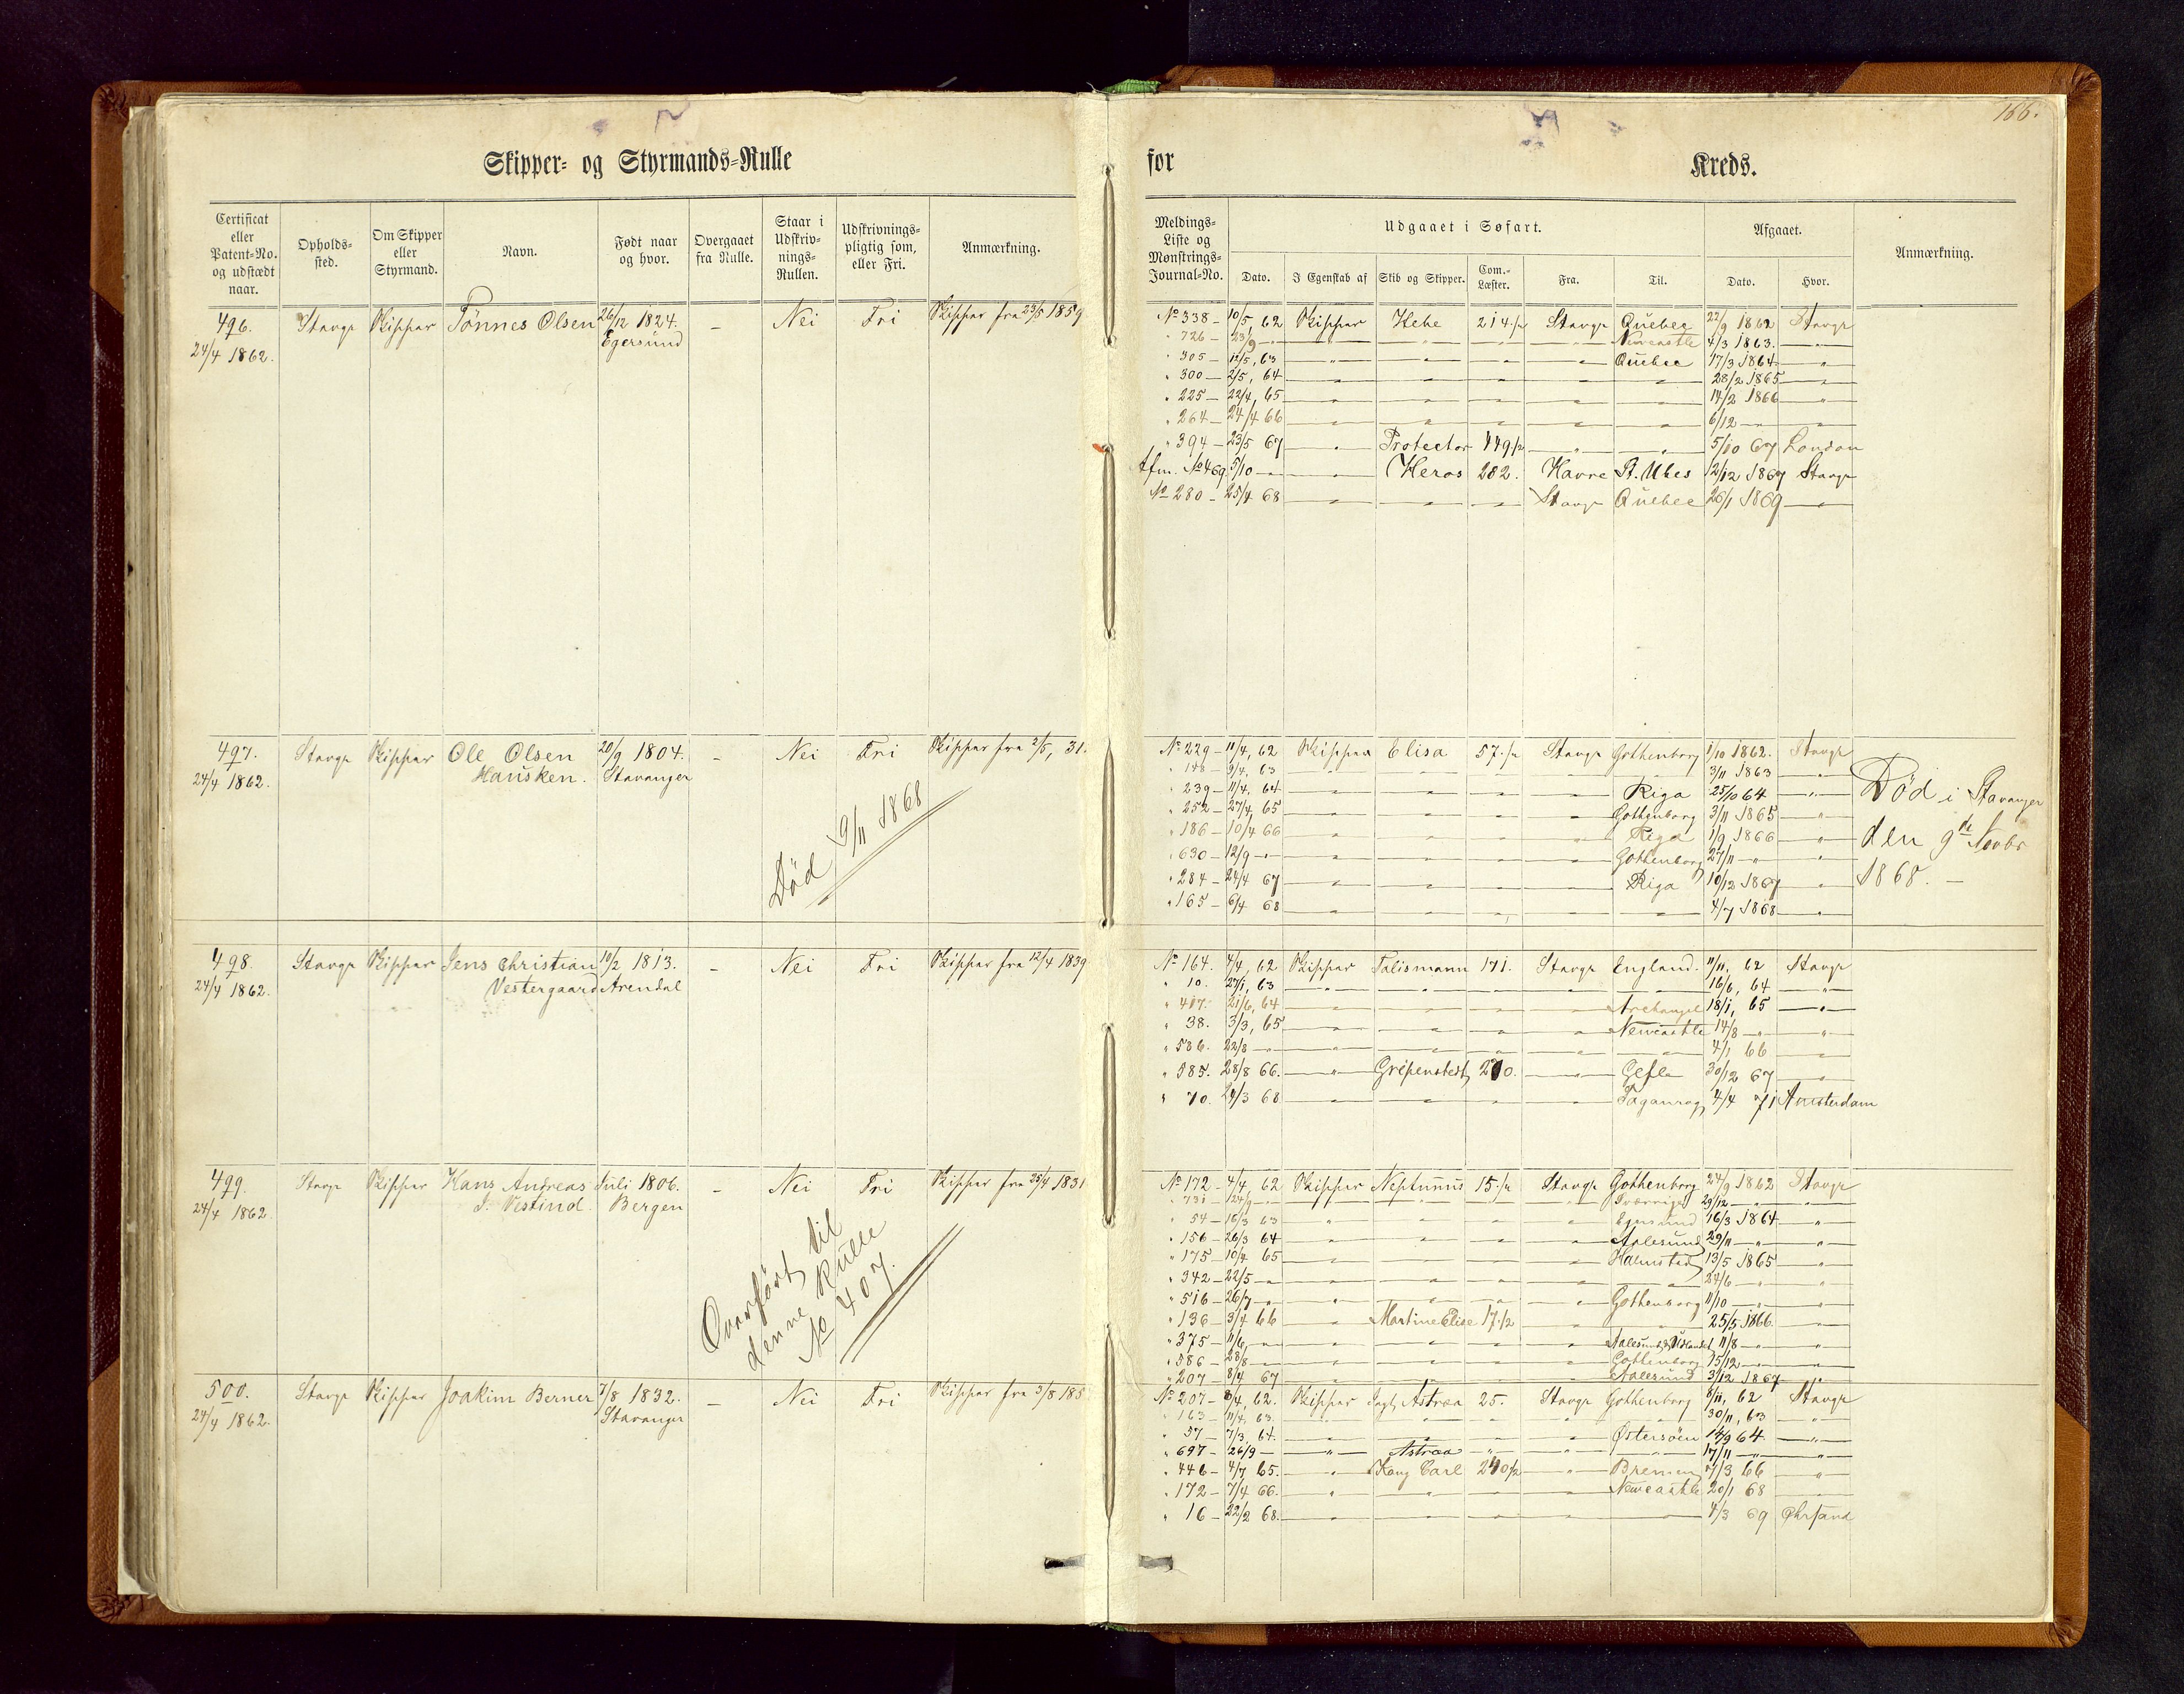 166.
Skipper- og Styrmands-Rulle
for Kreds.
Certificat eller Patent-No. og udstædt naar.
Opholds-sted.
Om Skipper eller Styrmand.
Navn.
Født naar og hvor.
Overgaaet fra Rulle.
Staar i Udskriv-nings-Rullen.
Udskrivnings-pligtig som, eller Fri.
Anmærkning.
Meldings-Liste og Mønstrings-Journal-No.
Udgaaet i Søfart.
Dato. I Egenskab af Skib og Skipper. Com.-Læster. Fra. Til.
Afgaaet.
Dato. Hvor.
Anmærkning.
496. Stavgr Skipper Tønnes Olsen 26/12 1824. — Nei Fri Skipper fra 23/5 1859
24/4 1862. Egersund
No 338 — 10/5, 62 Skipper Hebe 214.½ Stavgr Quebec 22/9 1862 Stavgr
" 726 — 23/9 — Newcastle 4/3 1863. "
" 305 — 12/5, 63 " Quebec 17/3 1864 "
" 300 — 2/5, 64 " 28/2 1865 "
" 225 — 22/4, 65 " 14/2 1866 "
" 264 — 24/4 66 " 6/12 — "
" 394 — 23/5 67 " Protector 149½ " " 5/10 67 London
Afm. No 469. 5/10 — " Heros 202. Havre St. Ubes 12/12 1867 Stavgr
No 280 — 25/4 68 " Stavgr Quebec 26/1 1869 "
497. Stavgr Skipper Ole Olsen 20/9 1804. — Nei Fri Skipper fra 2/5, 31.
24/4 1862. Hausken. Stavanger
Død 9/11 1868
No 229 — 11/4, 62 Skipper Elisa 57.½ Stavgr Gothenborg 1/10 1862. Stavgr
" 148 — 9/4, 63 " 3/11 1863 "
" 239 — 11/4, 64 " Riga 25/10 64 "
" 252 — 27/4, 65 " Gothenborg 3/11 1865 "
" 186 — 10/4 66 " Riga 1/9 1866 "
" 630 — 12/9 — " Gothenborg 27/11 — "
" 284 — 24/4 67 " Riga 10/12 1867 "
" 165 — 6/4 68 " 4/7 1868 "
Død i Stavanger
den 9de Novbr
1868. —
498. Stavgr Skipper Jens Christian 10/2 1813. — Nei Fri Skipper fra 12/4 1839
24/4 1862. Vestergaard Arendal
No 164. 4/4, 62 Skipper Talismann 171. Stavgr England. 11/11, 62 Stavgr
" 10. 27/1, 63 " 16/6, 64 "
" 417. 21/6, 64 " Archangel 18/1, 65 "
" 38. 3/3, 65 " Newcastle 14/8 — "
" 536. 22/8 — " 4/1 66 "
" 585. 28/8 66. " Gripenstedt 270. " Gefle 30/12 67 "
" 70. 24/3 68 " Taganrog 4/4 71 Amsterdam
499. Stavgr Skipper Hans Andreas Juli 1806. — Nei Fri Skipper fra 25/4 1831
24/4 1862. J. Vestind. Bergen
Overført til
denne Rulle
No 407.
No 172 — 4/4 62 Skipper Neptunus 15.½ Stavgr Gothenborg 24/9 1862 Stavgr
" 731 — Sverrige 29/12 — "
" 54 — 16/3 63 " 16/3 1864 "
" 156 — 26/3 64 " Aalesund 29/11 — "
" 175 — 10/4 65 " Halmstad 13/5 1865 "
" 342 — 22/5 — " 24/6 — "
" 516 — 26/7 — " Gothenborg 11/10 — "
" 136 — 3/4 66 " Martine Elise 17.½ " 25/5 1866. "
" 375 — 11/6, — " 11/8 — "
" 586 — 28/8 — " Gothenborg 15/12 — "
" 207 — 8/4 67 " Aalesund 3/12 1867 "
500. Stavgr Skipper Joakim Berner 7/8 1832. — Nei Fri Skipper fra 3/8 185
24/4 1862. Stavanger
No 207 — 8/4, 62. Skipper Jagt Astræa 25. Stavgr Gothenborg 8/11, 62 Stavgr
" 163 — 11/4, 63. " 30/11, 63 "
" 57 — 7/3, 64. " Østersöen 14/9 64 "
" 697 — 26/9 — " Astræa " 17/11 — "
" 446 — 4/7 65. " Kong Carl 240½ " Bremen 7/3 66 "
" 172 — 7/4 66. " Newcastle 20/1 68 "
" 16 — 22/2 68. " 4/3 69 Chrsand